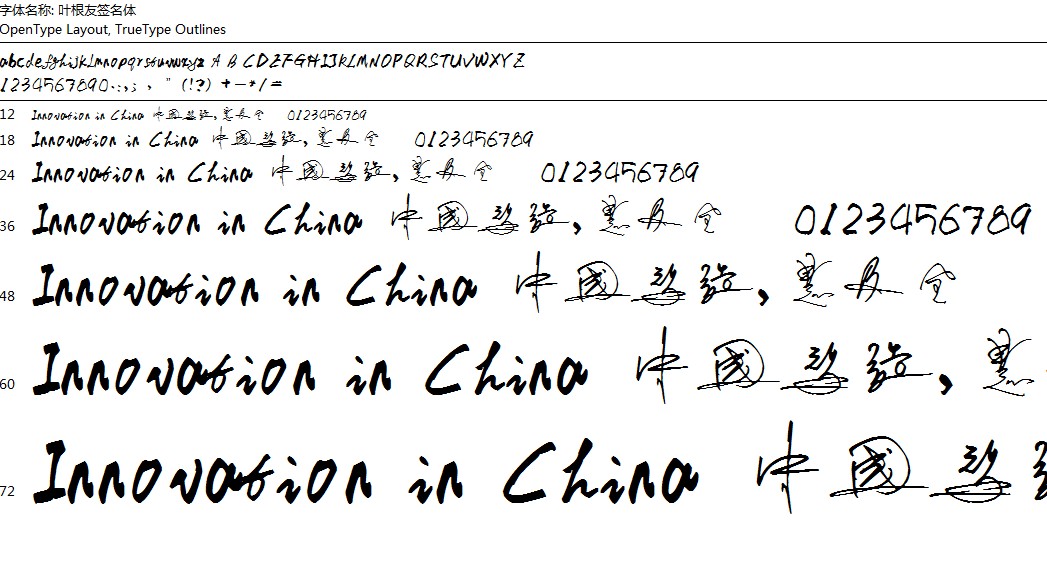 字体名称: 叶根友签名体
OpenType Layout, TrueType Outlines
abcdefghijklmnopqrstuvwxyz A B CDEFGHIJKLMNOPQRSTUVWXYZ
1234567890.:,; , " (!?) +-*/=
12 Innovation in China 中国智造,惠及全 0123456789
18 Innovation in China 中国智造,惠及全 0123456789
24 Innovation in China 中国智造,惠及全 0123456789
36 Innovation in China 中国智造,惠及全 0123456789
48 Innovation in China 中国智造,惠及全
60 Innovation in China 中国智造,惠
72 Innovation in China 中国智